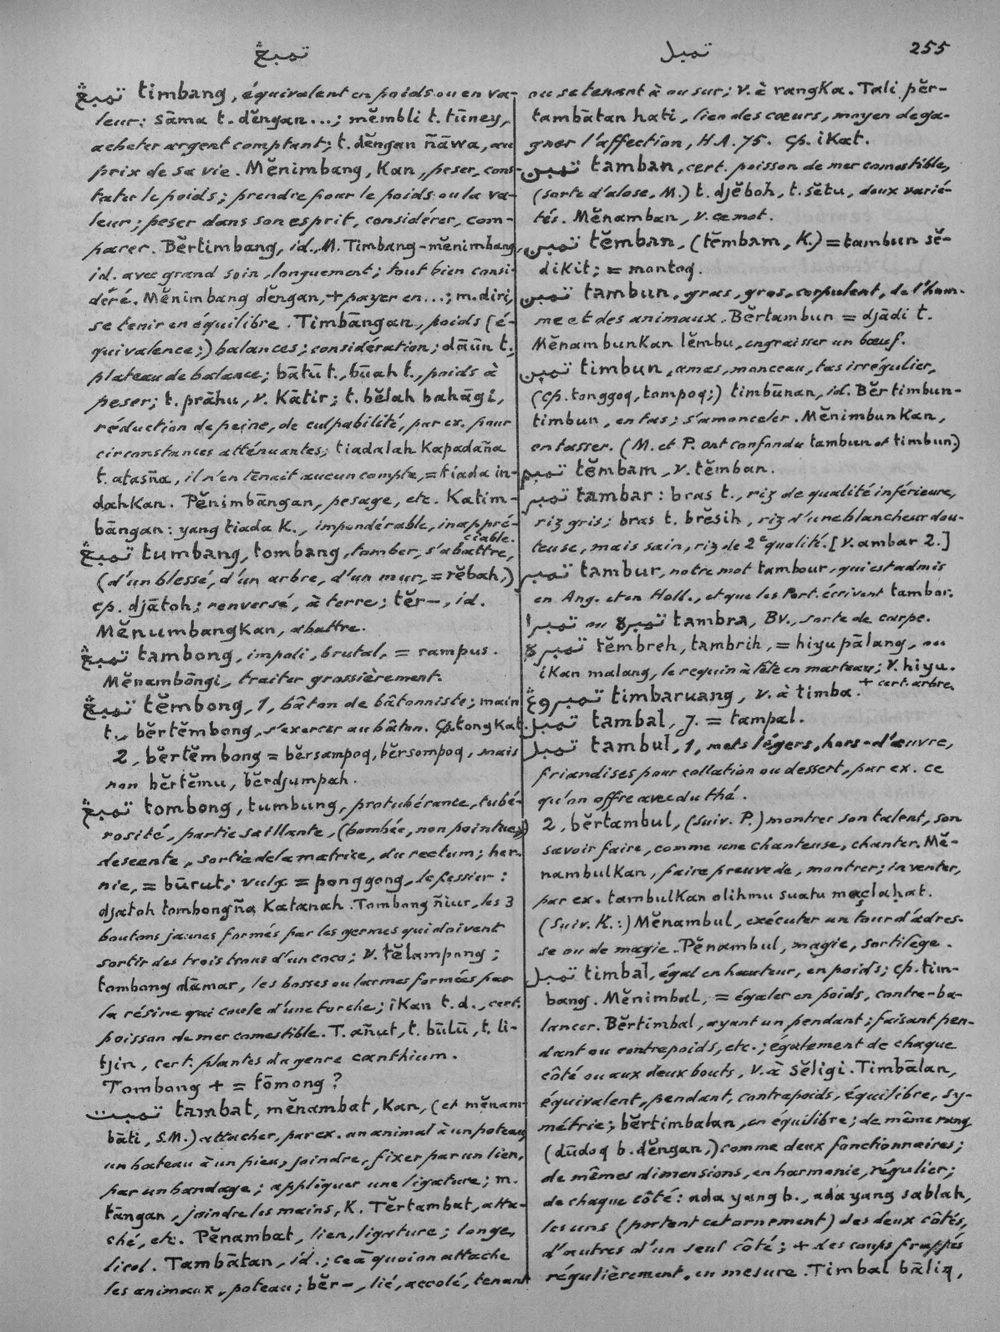 تمبڠ
تمبل
255
تمبڠ timbang, équivalent en poids ou en va-
leur: sāma t. dĕngan...; mĕmbli t. tūney,
acheter argent comptant; t. dĕngan ñāwa, au
prix de sa vie. Mĕnimbang, Kan, peser, cons-
tater le poids; prendre pour le poids ou la va-
leur; peser dans son esprit, considérer, com-
parer. Bĕrtimbang, id., M. Timbang-mĕnimbang,
id. avec grand soin, longuement; tout bien consi-
déré. Mĕnimbang dĕngan, + payer en...; m. diri,
se tenir en équilibre. Timbāngan, poids (é-
quivalence;) balances; considération; dāūn t.,
plateau de balance; bātū t., būah t., poids à
peser; t. prāhu, v. Kātir; t. bĕlah bahāgi,
réduction de peine, de culpabilité, par ex. pour
circonstances atténuantes; tiadalah Kapadaña
t. atasña, il n'en tenait aucun compte, = tiada in-
dahKan. Pĕnimbāngan, pesage, etc. Katim-
bāngan: yang tiada K., impondérable, inappré-
ciable.
تمبڠ tumbang, tombang, tomber, s'abattre,
(d'un blessé, d'un arbre, d'un mur, = rĕbah,)
cp. djātoh; renversé, à terre; tĕr-, id.
MĕnumbangKan, abattre.
تمبڠ tambong, impoli, brutal, = rampus.
Mĕnambōngi, traiter grossièrement.
تمبڠ tĕmbong, 1, bâton de bâtonniste; main
t., bĕrtĕmbong, s'exercer au bâton. Cp. tongKat.
2, bĕrtĕmbong = bĕrsampoq, bĕrsompoq, mais
non bĕrtĕmu, bĕrdjumpah.
تمبڠ tombong, tumbung, protubérance, tubé-
rosité, partie saillante, (bombée, non pointue;)
descente, sortie de la matrice, du rectum; her-
nie, = būrut; vulg = ponggong, le fessier:
djatoh tombongña Katanah. Tombong ñiur, les 3
boutons jaunes formés par les germes qui doivent
sortir des trois trous d'un coco; v. tĕlampong;
tombong dāmar, les bosses ou larmes formées par
la résine qui coule d'une torche; iKan t. d., cert.
poisson de mer comestible. T. añut, t. būlū, t. li-
tjin, cert. plantes du genre canthium.
Tombong + = tōmong?
تمبت tambat, mĕnambat, Kan, (et mĕnam-
bāti, S.M.) attacher, par ex. un animal à un poteau,
un bateau à un pieu, joindre, fixer par un lien,
par un bandage; appliquer une ligature; m.
tāngan, joindre les mains, K. Tĕrtambat, atta-
ché, etc. Pĕnambat, lien, ligature; longe,
licol. Tambātan, id.; ce à quoi on attache
les animaux, poteau; bĕr-, lié, accolé, tenant
ou se tenant à ou sur; v. à rangKa. Tali pĕr-
tambātan hati, lien des cœurs, moyen de ga-
gner l'affection, H.A. 75. Cp. iKat.
تمبن tamban, cert. poisson de mer comestible,
(sorte d'alose, M.) t. djĕboh, t. sĕtu, deux varié-
tés. Mĕnamban, v. ce mot.
تمبن tĕmban, (tĕmbam, K.) = tambun sĕ-
dikit; = montoq.
تمبن tambun, gras, gros, corpulent, de l'hom-
me et des animaux. Bĕrtambun = djādi t.
MĕnambunKan lĕmbu, engraisser un bœuf.
تمبن timbun, amas, monceau, tas irrégulier,
(cp. tonggoq, tompoq;) timbūnan, id. Bĕrtimbun-
timbun, en tas; s'amonceler. MĕnimbunKan,
entasser. (M. et P. ont confondu tambun et timbun)
تمبم tĕmbam, v. tĕmban.
تمبر tambar: bras t., riz de qualité inférieure,
riz gris; bras t. brĕsih, riz d'une blancheur dou-
teuse, mais sain, riz de 2e qualité. [v. ambar 2.]
تمبر tambur, notre mot tambour, qui est admis
en Ang. et en Holl., et que les Port. écrivent tambor.
تمبرا ou تمبره tambra, Bv., sorte de carpe.
تمبره tĕmbreh, tambrih, = hiyu pālang, ou
iKan malang, le requin à tête en marteau; v. hiyu.
تمبروڠ timbaruang, v. à timba. + cert. arbre.
تمبل tambal, j. = tampal.
تمبل tambul, 1, mets légers, hors-d'œuvre,
friandises pour collation ou dessert, par ex. ce
qu'on offre avec du thé.
2, bĕrtambul, (suiv. P.) montrer son talent, son
savoir faire, comme une chanteuse, chanter. Mĕ-
nambulKan, faire preuve de, montrer; inventer,
par ex. tambulKan olihmu suatu maçlaḥat.
(Suiv. K.:) Mĕnambul, exécuter un tour d'adres-
se ou de magie. Pĕnambul, magie, sortilège.
تمبل timbal, égal en hauteur, en poids; cp. tim-
bang. Mĕnimbal, = égaler en poids, contre-ba-
lancer. Bĕrtimbal, ayant un pendant; faisant pen-
dant ou contrepoids, etc.; également de chaque
côté ou aux deux bouts, v. à sĕligi. Timbālan,
équivalent, pendant, contrepoids, équilibre, sy-
métrie; bĕrtimbalan, en équilibre; de même rang
(dūdoq b. dĕngan,) comme deux fonctionnaires;
de mêmes dimensions, en harmonie, régulier;
de chaque côté: ada yang b., ada yang sablah,
les uns (portent cet ornement) des deux côtés,
d'autres d'un seul côté; + des coups frappés
régulièrement, en mesure. Timbal bāliq,